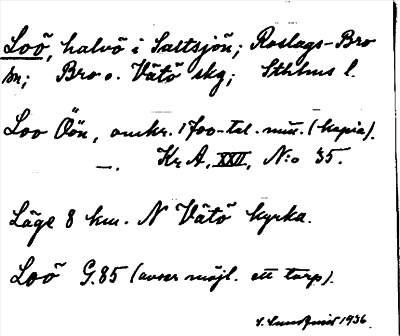 Loö, halvö i Saltsjön; Roslags-Bro
sn; Bro o. Vätö skg; Sthlms l.
Loo Öön, omkr. 1700-tal. mitt. (kopia).
—. Kr A, XXII, N:o 35.
Läge 8 km. N Vätö kyrka.
Loö G.85 (avser möjl. ett torp).
S. Lundqvist 1936